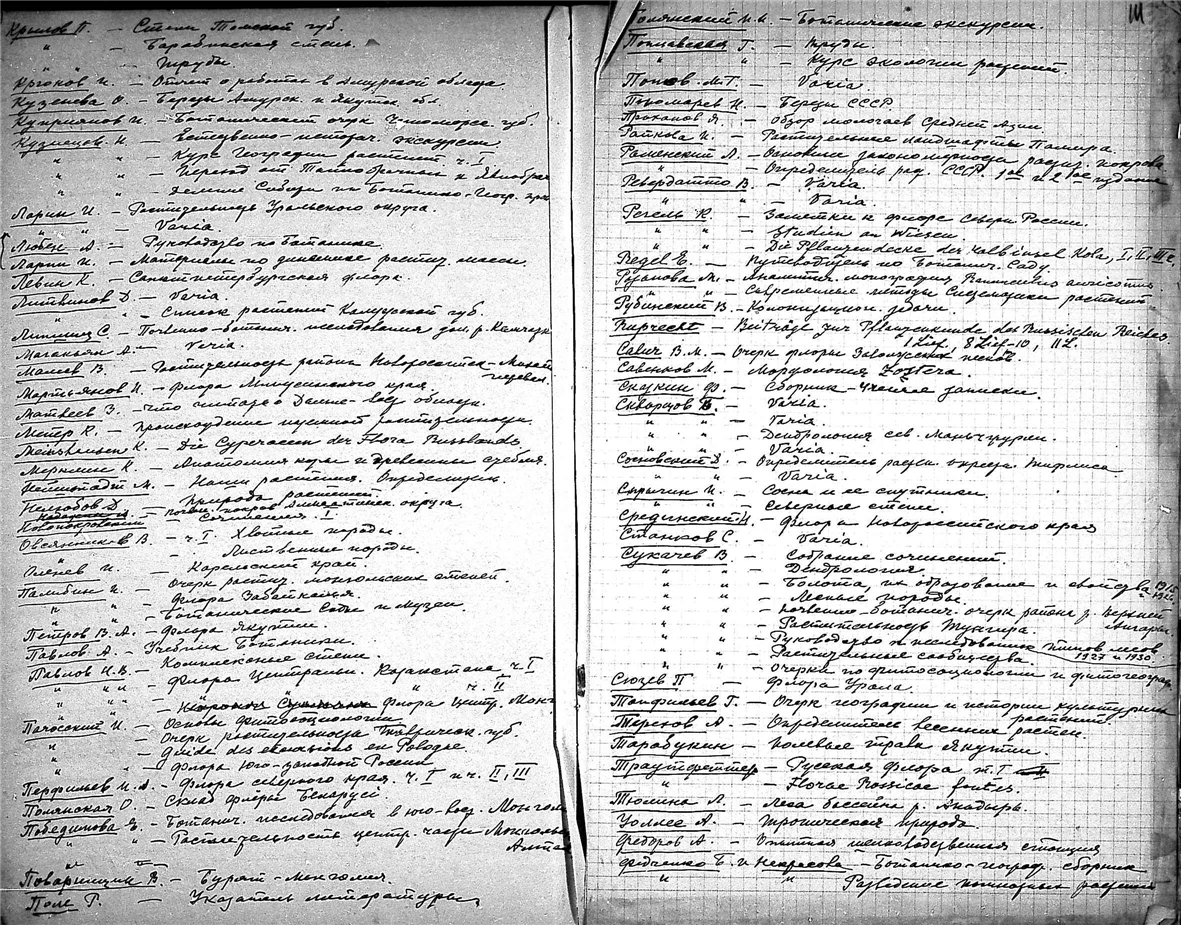 Крылов П. — Степи Томской губ.
" — Барабинская степь.
" " — Труды.
Крюков Н. — Отчет о работах в Амурской области
Кузенева О. — Березы Амурск. и Якутск. обл.
Куприянов И. — Ботанический очерк Черноморск. губ.
Кузнецов Н — Естественно-историч. экскурсии
" " — Курс Географии растений ч. I
" " — Переход от Таллобрачных к
" " — деление Сибири на Ботанико-Геогр. пров
Ларин И. — Растительность Уральского округа.
" " — Varia.
Любен А. — Руководство по Ботанике.
Ларин И. — Материалы по динамике растит. массы
Левин К. Санктпетербургская флора.
Литвинов Д — Varia.
" — Список растений Калужской губ.
Липшиц С. — Почвенно-ботанич. исследования дол. р. Камчатк
Магакьян А. — Varia.
Малеев В. — Растительность района Новороссийск-Михай
перевал.
Мартьянов Н. — Флора Минусинского края.
Матвеев З. — Что читать о Дальне-Вост области.
Мейер К. — Происхождение наземной растительности
Мейнсгаузен К. — Die Cyperaceen der Flora Russlands
Мерклин К. — Анатомия коры и древесины стебля.
Нейштадт М. — Наши растения. Определитель.
Нелюбов Д — Природа растений.
— почвен. покров Алмаатинск. округа
Новопокровский — Сочинения. I.
Овсянников В — ч. I. Хвойные породы
" — Лиственные породы.
И. — Карельский край.
Палибин И. — Очерк растит. монгольских степей.
" " — Флора Забайкалья
" " — Ботанические Сады и Музеи
Петров В. А. — Флора Якутии.
Павлов А. — Учебник Ботаники.
Павлов Н. В. — Комплексные степи.
" " " — Флора Централь. Казакстана ч. I
" " — " ч. II
" " — Флора центр. Монг
Пачосский И. — Основы фитосоциологии
" — Очерк растительности Таврическ. губ.
" — Guide des excursions en Podolie.
" — Флора Юго-западной России
Перфильев И. А. — Флора северного края. ч. I и ч. II, III
Полянская О. — Склад флёры Беларусі.
Победимова Е. — Ботанич. исследования в юго-вост. Монгол
" " — Растительность центр. части Монгольс
Алтая
Поварницын В. — Бурят-Монголия.
Поле Р. — Указатель литературы
III
Полянский И. И. — Ботанические экскурсии.
Поплавская Г. — Труды.
" " — Курс экологии растений.
Попов. М. Г. — Varia.
Пономарев Н. — Березы СССР.
Проханов Я. — Обзор молочаев Средней Азии.
Райкова И. — Растительные ландшафты Памира.
Раменский Л. — Основные закономерности растит. покрова.
" — Определитель раст. СССР. 1ое и 2ое издания
Ревердатто В. — Varia.
" — Varia.
Регель К. — Заметки к флоре севера России.
" " — Studien an Wiesen
" " — Die Pflanzendecke der Halbinsel Kola, I, II, III
Regel E. — Путеводитель по Ботанич. Саду.
Рузанова М. — Аналитич. монография Ranunculus auricomus
" — Современные методы Систематики растений
Рубинский В. — Колонизацион. задачи.
Ruprecht — Beiträge zur Pflanzenkunde des Russischen Reiches.
1 Lief., 8 Lief-10, 11 L.
Савич В. М. — Очерк флоры лесов.
Савенков М. — Морфология Zostera.
Ф. — Сборник — Ученые записки.
Скварцов Б. — Varia.
" " — Varia.
" " — Дендрология сев. Маньчжурии.
" " — Varia.
Сосновский Д. — Определитель раст. окрест. Тифлиса
" — Varia.
Спрыгин И. — Сосна и ее спутники.
" " — Северные степи.
Срединский Н. — Флора Новороссийского края
Станков С. — Varia.
Сукачев В. — Собрание сочинений.
" " — Дендрология
" " — Болота, их образование и свойства
" " — Лесные породы.
" " — почвенно-ботанич. очерк района р. Верхней
Ангары.
" " — Растительность Тунгира.
" " — Руководство к исследованию типов лесов
1927 и 1930.
" " — Растительные сообщества.
" " — Очерки по фитосоциологии и фитогеограф.
Сюзев П — Флора Урала.
Танфильев Г. — Очерк географии и истории культурных
растений.
Терехов А. — Определитель весенних растен.
Тарабукин — Полевые травы Якутии.
Траутфеттер — Русская флора т. I
" — Florae Rossicae fontes.
Тюлина Л. — Леса бассейна р. Анадырь.
Уоллес А. — Тропическая природа.
Федоров А. — Опытная шелководственная станция
Федченко Б. и Некрасова — Ботанико-географ. сборник
" " Разведение комнатных растений